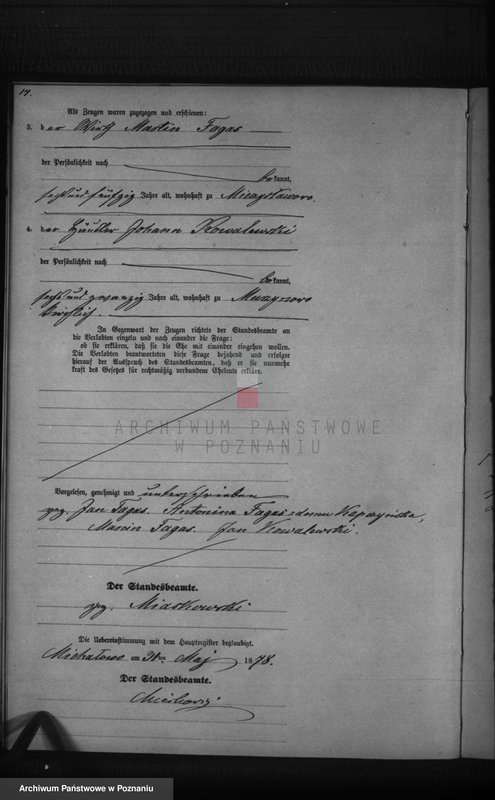 14.
Als Zeugen waren zugezogen und erschienen:
3. der Wirth Martin Fagas
der Persönlichkeit nach
bekannt,
sechsundfünfzig Jahre alt, wohnhaft zu Mieczysławowo.
4. der Häusler Johann Kowalewski
der Persönlichkeit nach
bekannt,
sechsundzwanzig Jahre alt, wohnhaft zu
In Gegenwart der Zeugen richtete der Standesbeamte an
die Verlobten einzeln und nach einander die Frage:
ob sie erklären, daß sie die Ehe mit einander eingehen wollen.
Die Verlobten beantworteten diese Frage bejahend und erfolgte
hierauf der Ausspruch des Standesbeamten, daß er sie nunmehr
kraft des Gesetzes für rechtmäßig verbundene Eheleute erkläre.
ARCHIWUM PAŃSTWOWE
W POZNANIU
Vorgelesen, genehmigt und unterschrieben
gez. Jan Fagas. Antonina Fagas z domu Kapczyńska,
Marcin Fagas. Jan Kowalewski.
Der Standesbeamte.
gez. Miaskowski
Die Uebereinstimmung mit dem Hauptregister beglaubigt.
Michałowo am ten Maj 1878.
Der Standesbeamte.
Miaskowski
Archiwum Państwowe w Poznaniu